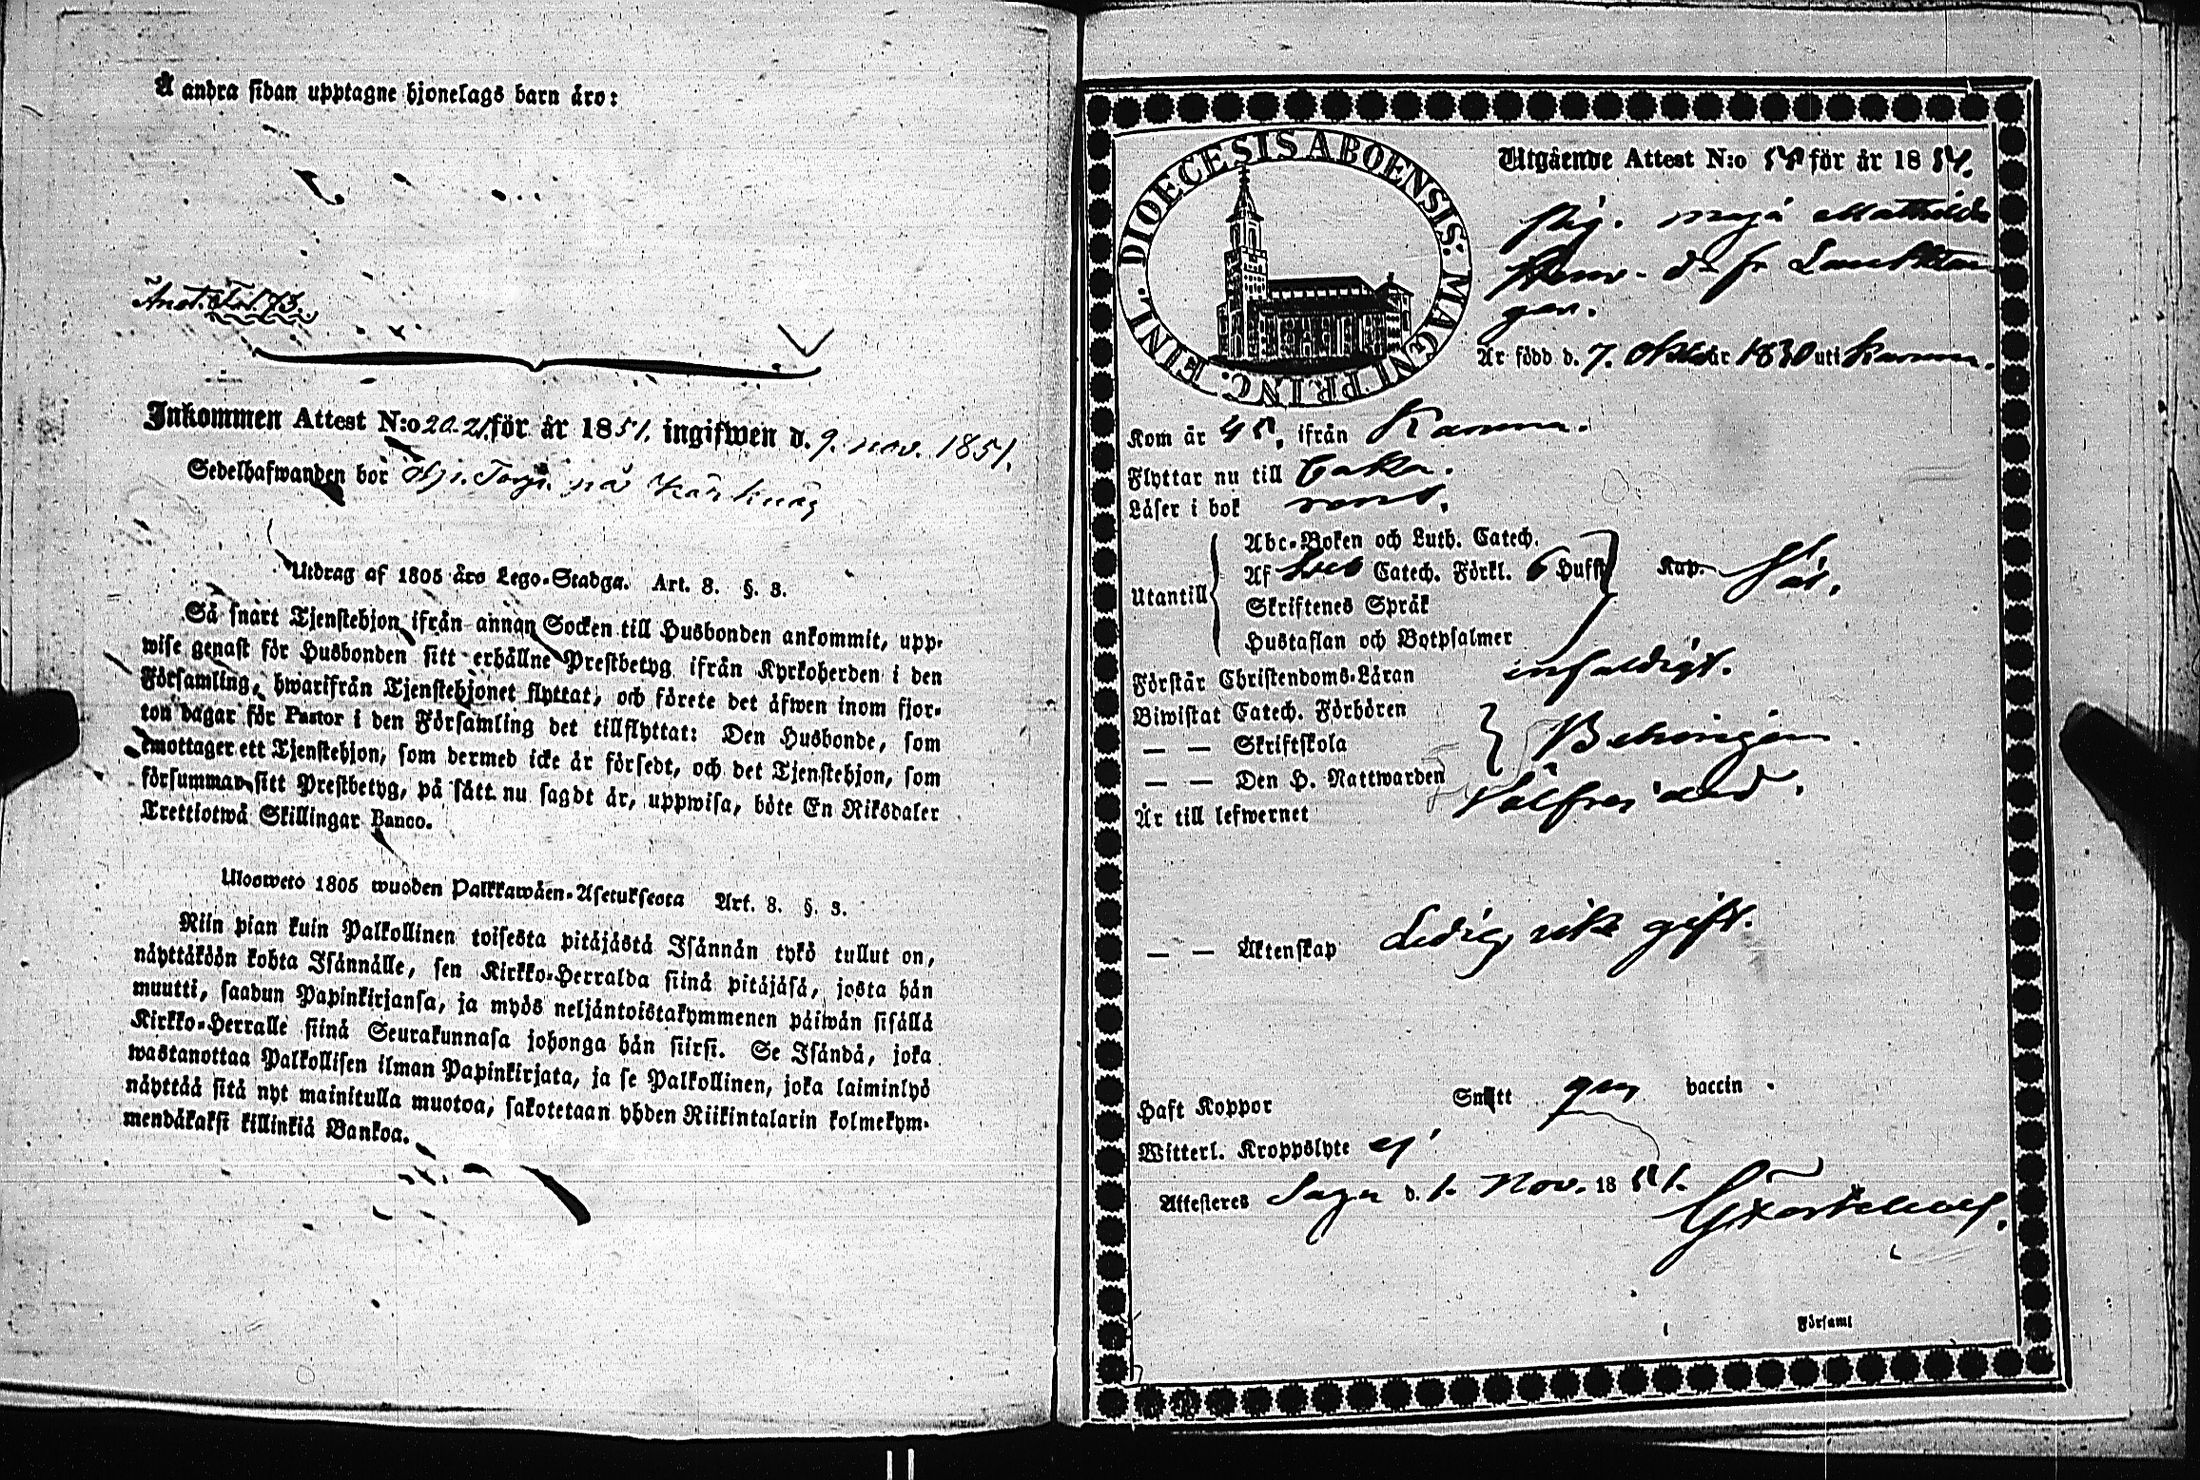 Å andra sidan upptagne hjonelags barn äro:
Anot. Fol. 73.
Inkommen Attest N:o 20-21. för år 1851. ingifwen d. 9. nov. 1851.
Sedelhafwanden bor på
Utdrag af 1805 års Lego-Stadga. Art. 8. §. 3.
Så snart Tjenstehjon ifrån annan Socken till Husbonden ankommit, upp-
wise genast för Husbonden sitt erhållne Prestbetyg ifrån Kyrkoherden i den
Församling, hwarifrån Tjenstehjonet flyttat, och förete det äfwen inom fjor-
ton dagar för Pastor i den Församling det tillflyttat: Den Husbonde, som
emottager ett Tjenstehjon, som dermed icke är försedt, och det Tjenstehjon, som
försummar sitt Prestbetyg, på sätt nu sagdt är, uppwisa, böte En Riksdaler
Trettiotwå Skillingar Banco.
Ulosweto 1805 wuoden Palkkawäen-Asetuksesta Art. 8. §. 3.
Niin pian kuin Palkollinen toisesta pitäjästä Isännän tykö tullut on,
näyttäköön kohta Isännälle, sen Kirkko-Herralda siinä pitäjäsä, josta hän
muutti, saadun Papinkirjansa, ja myös neljäntoistakymmenen päiwän sisällä
Kirkko-Herralle siinä Seurakunnasa johonga hän siirsi. Se Isändä, joka
wastanottaa Palkollisen ilman Papinkirjata, ja se Palkollinen, joka laiminlyö
näyttää sitä nyt mainitulla muotoa, sakotetaan yhden Riikintalarin kolmekym-
mendäkaksi killinkiä Bankoa.
DIOECESIS ABOENSIS: MAGNI PRINC. FINL.
Utgående Attest N:o för år 1851.
pig. Maja Mathilda
d:r fr.
gen.
Är född d. 7. Okto år 1830 uti Karuna.
Kom år 45. ifrån Karuna.
Flyttar nu till
Läser i bok rent.
Utantill
Abc-Boken och Luth. Catech.
Af Sveb Catech. Förkl. 6 Hufst
Skriftenes Språk
Hustaflan och Botpsalmer
Kap.
Förstår Christendoms-Läran enfaldigt.
Biwistat Catech. Förhören
— — Skriftskola Behörigen
— — Den H. Nattwarden
Är till lefwernet välfrejdad.
— — Äktenskap Ledig, icke gift.
Haft Koppor Smitt gm vaccin
Witterl. Kroppslyte ej
Attesteres Sagu d. 1. Nov. 1851.
Församl